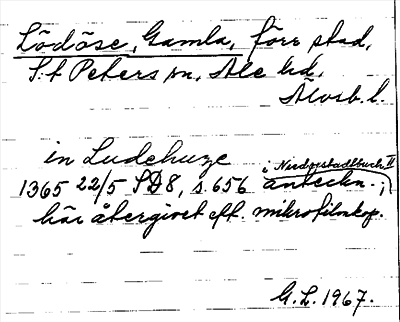 Lödöse, Gamla, förr stad,
S:t Peters sn, Ale hd,
Älvsb. l.
in Ludehuze
i Niederstadtbuch II
1365 22/5 SD 8, s. 656 anteckn.;
här återgivet eft. mikrofilmkop.
G.L. 1967.